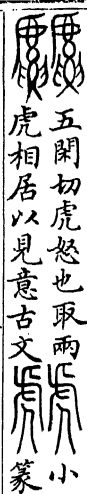 虤
五閑切虎怒也取兩
虎相居以見意古文
虤
小
篆